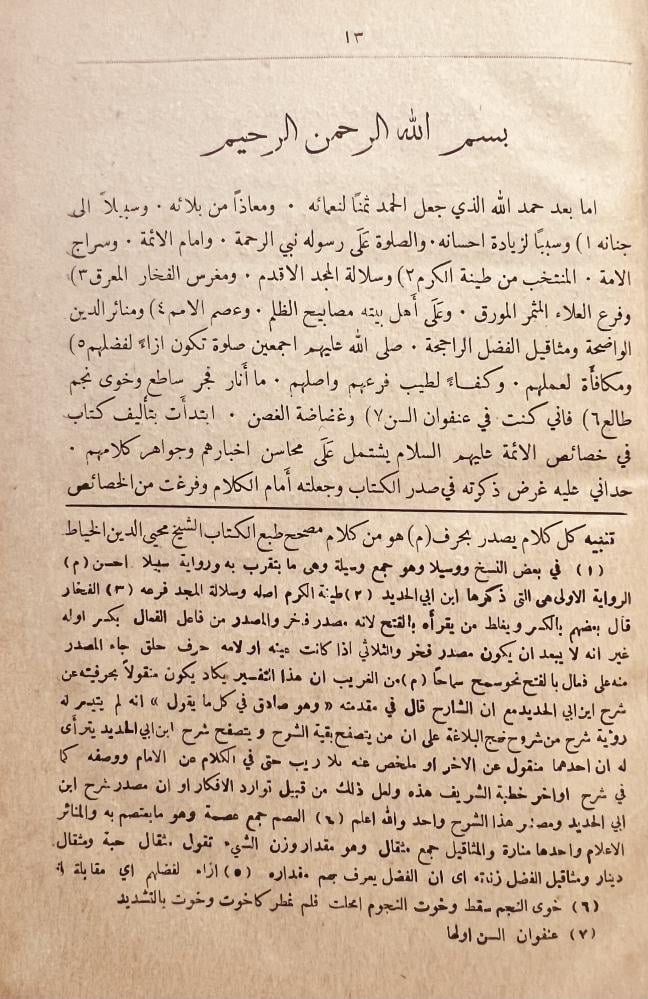 ١٣
بسم الله الرحمن الرحيم
اما بعد حمد الله الذي جعل الحمد ثمنًا لنعمائه ٠ ومعاذًا من بلائه ٠ وسبيلاً الى
جنانه ١) وسببًا لزيادة احسانه ٠ والصلوة عَلَى رسوله نبي الرحمة ٠ وامام الائمة ٠ وسراج
الامة ٠ المنتخب من طينة الكرم ٢) وسلالة المجد الاقدم ٠ ومغرس الفخار المعرق ٣)
وفرع العلاء المثمر المورق ٠ وعَلَى أَهل بيته مصابيح الظلم ٠ وعصم الامم ٤) ومنائر الدين
الواضحة ومثاقيل الفضل الراجحة ٠ صلى الله عليهم اجمعين صلوة تكون ازاءً لفضلهم ٥)
ومكافأَة لعملهم ٠ وكفاءً لطيب فرعهم واصلهم ٠ ما أَنار فجر ساطع وخوى نجم
طالع ٦) فاني كنت في عنفوان السن ٧) وغضاضة الغصن ٠ ابتدأَت بتأليف كتاب
في خصائص الائمة عليهم السلام يشتمل عَلَى محاسن اخبارهم وجواهر كلامهم ٠
حداني عليه غرض ذكرته في صدر الكتاب وجعلته أَمام الكلام وفرغت من الخصائص
تنبيه كل كلام يصدر بحرف (م) هو من كلام مصحح طبع الكتاب الشيخ محيي الدين الخياط
(١) في بعض النسخ ووسيلا وهو جمع وسيلة وهي ما يتقرب به ورواية سبيلا احسن (م)
الرواية الاولى هى التى ذكرها ابن ابي الحديد (٢) طينة الكرم اصله وسلالة المجد فرعه (٣) الفخار
قال بعضهم بالكسر ويغلط من يقرأه بالفتح لانه مصدر فاخر والمصدر من فاعل الفعال بكسر اوله
غير انه لا يبعد ان يكون مصدر فخر والثلاثي اذا كانت عينه او لامه حرف حلق جاء المصدر
منه على فعال بالفتح نحو سمح سماحًا (م) من الغريب ان هذا التفسير يكاد يكون منقولاً بحرفيته عن
شرح ابن ابي الحديد مع ان الشارح قال في مقدمته « وهو صادق في كل ما يقول » انه لم يتيسر له
رؤية شرح من شروح نهج البلاغة على ان من يتصفح بقية الشرح و يتصفح شرح ابن ابي الحديد يترأى
له ان احدهما منقول عن الاخر او ملخص عنه بلا ريب حتى في الكلام عن الامام ووصفه كما
في شرح اواخر خطبة الشريف هذه ولعل ذلك من قبيل توارد الافكار او ان مصدر شرح ابن
ابي الحديد ومصدر هذا الشرح واحد والله اعلم (٤) العصم جمع عصمة وهو ما يعتصم به والمنائر
الاعلام واحدها منارة والمثاقيل جمع مثقال وهو مقدار وزن الشيء تقول مثقال حبة ومثقال
دينار ومثاقيل الفضل زناته اى ان الفضل يعرف بهم مقداره (٥) ازاء لفضلهم اي مقابلة له
(٦) خوى النجم سقط وخوت النجوم امحلت فلم تمطر كاخوت وخوت بالتشديد
(٧) عنفوان السن اولها